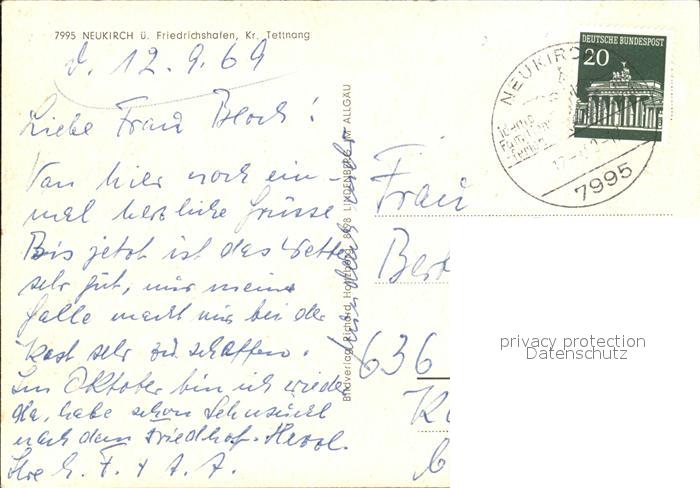 7995 NEUKIRCH ü. Friedrichshafen, Kr. Tettnang
d. 12.9.69
Liebe Frau Bloch!
Von hier noch ein-
mal herzliche Grüsse
Bis jetzt ist das Wetter
sehr gut, nur meine
Galle macht mir bei der
Kost sehr zu schaffen.
Im Oktober bin ich wieder
da, habe schon Sehnsucht
nach dem Friedhof. Herzl.
Ihre
Bildverlag Richard 8998 LINDENBERG IM ALLGÄU
DEUTSCHE BUNDESPOST
20
NEUKIRCH
7995
Frau
Ber
636
privacy protection
Datenschutz